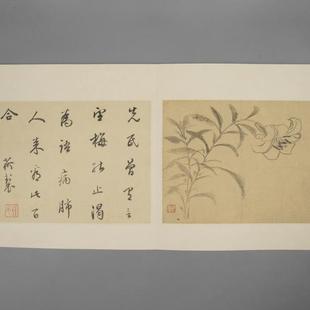 先民曾有言
望梅能止渴
為語病肺
人來看此百
合